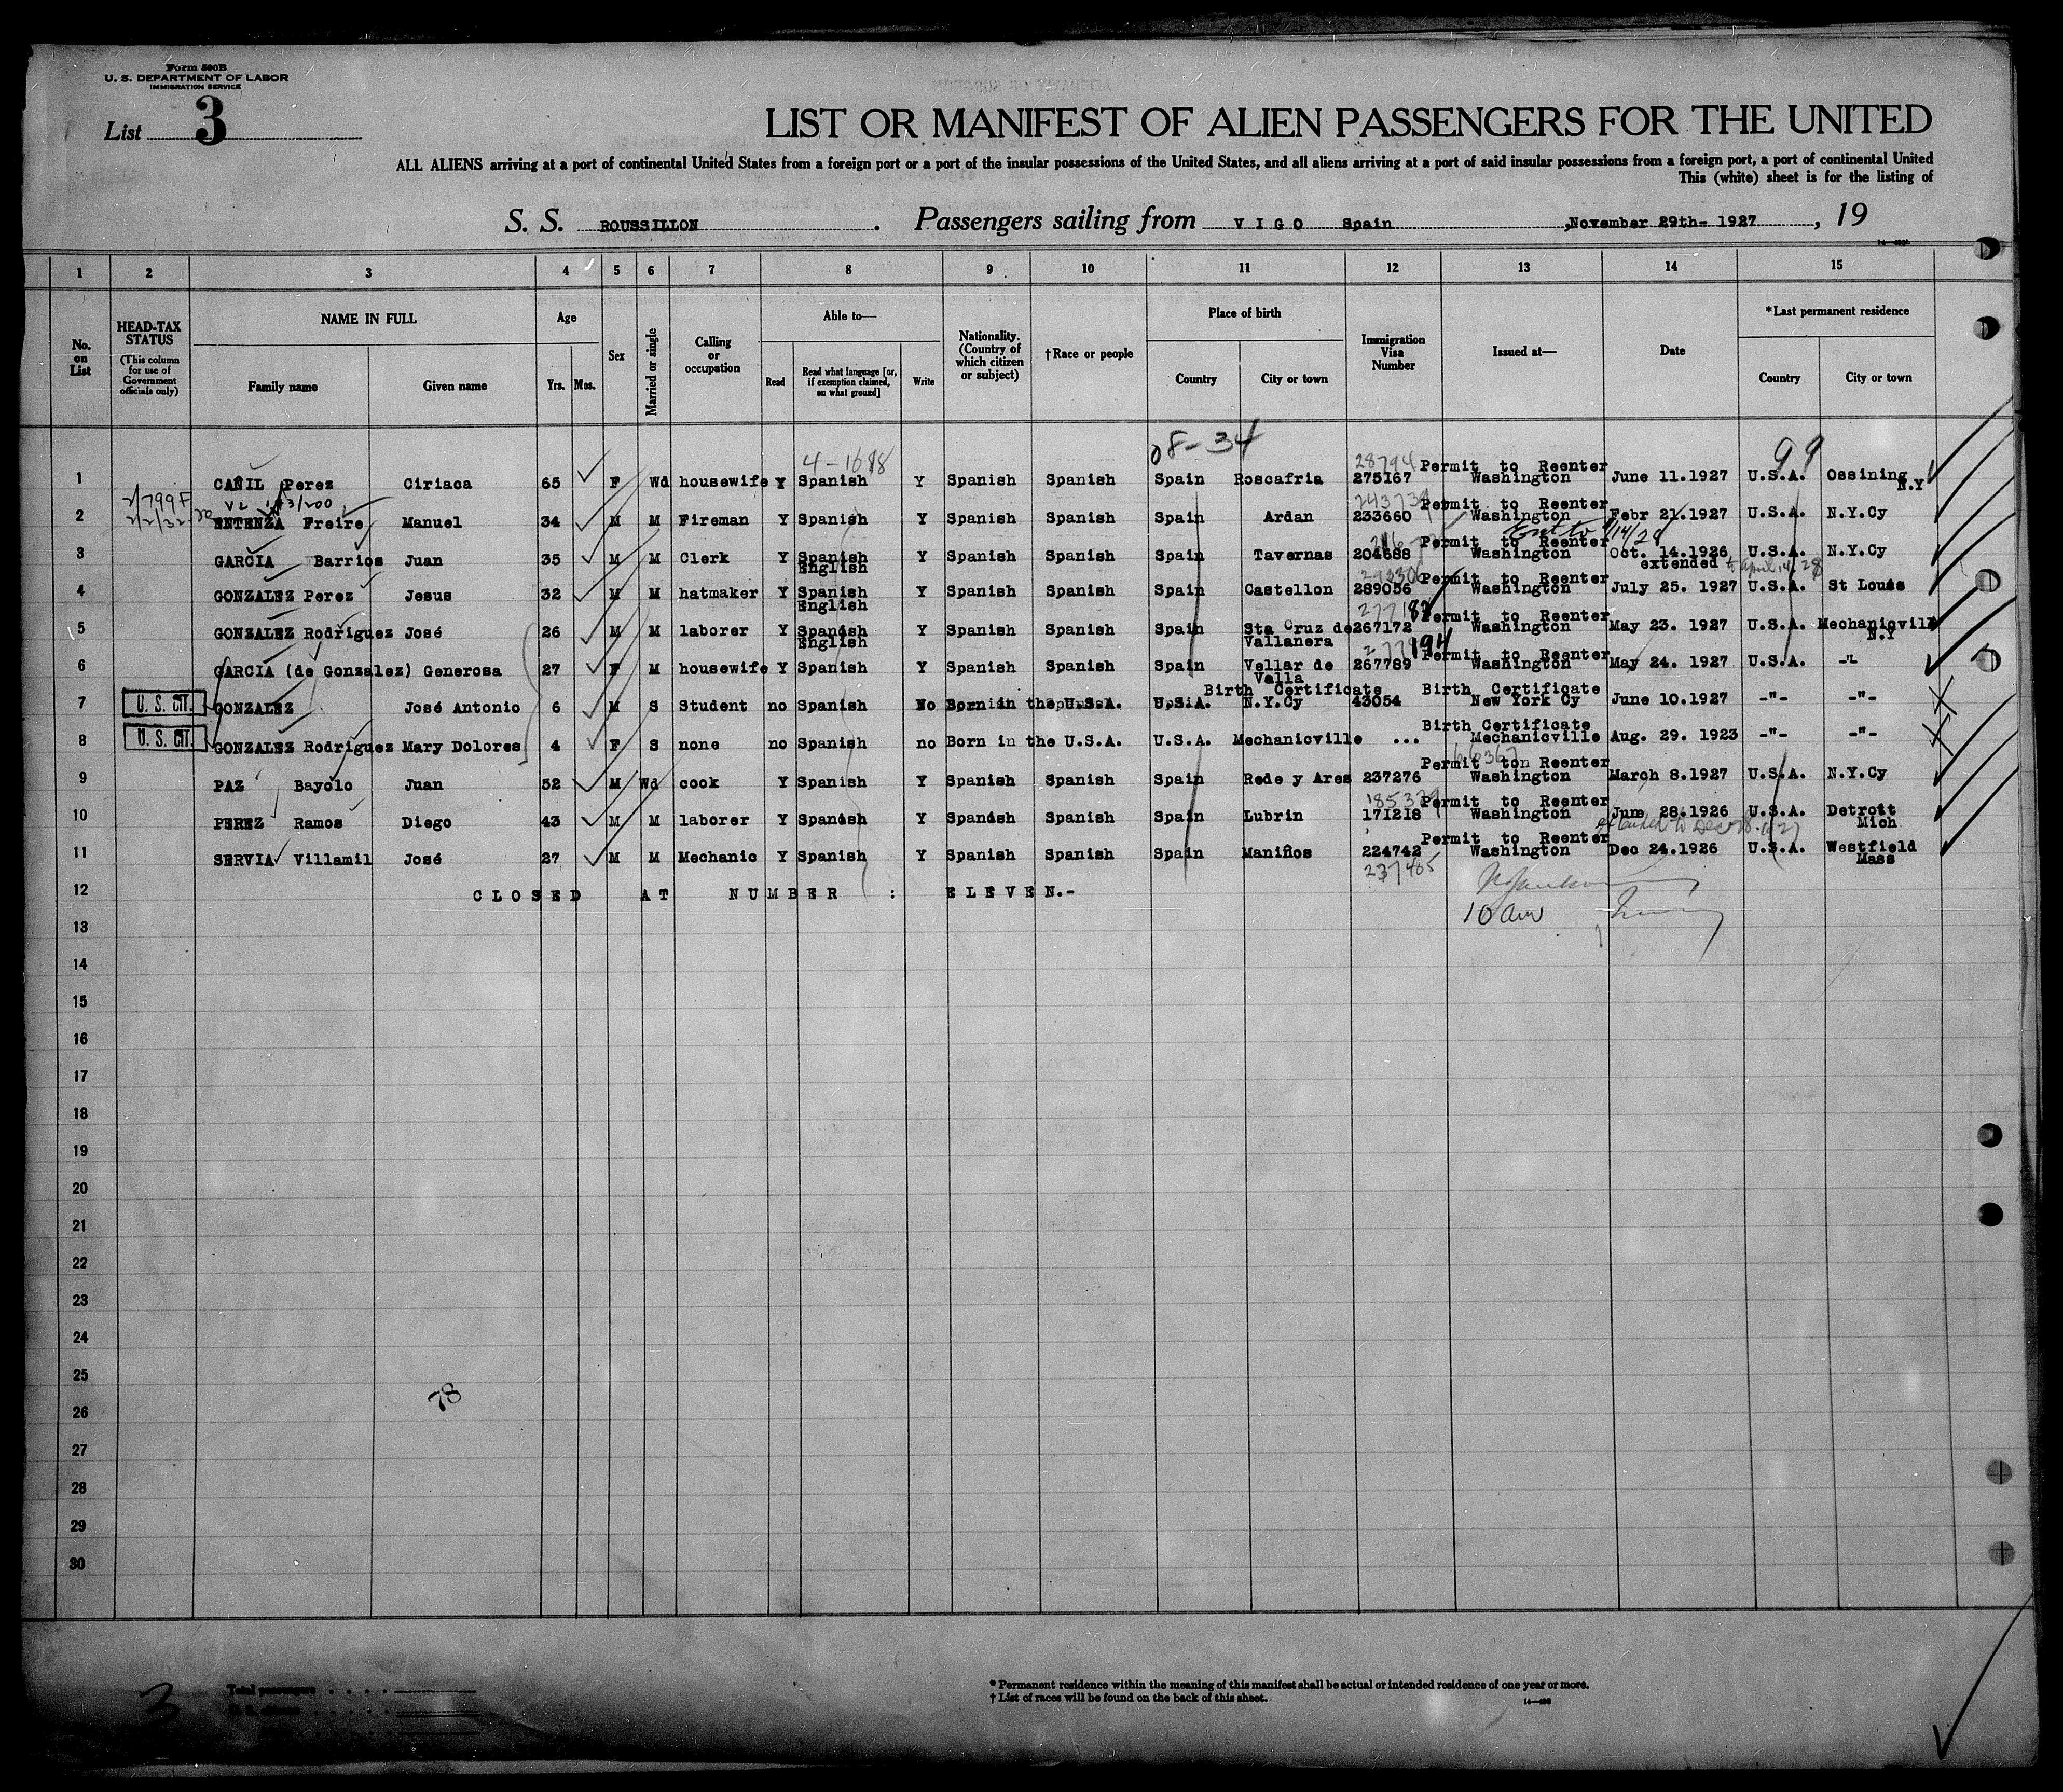 Form 500B
U. S. DEPARTMENT OF LABOR
IMMIGRATION SERVICE
List 3
LIST OR MANIFEST OF ALIEN PASSENGERS FOR THE UNITED
ALL ALIENS arriving at a port of continental United States from a foreign port or a port of the insular possessions of the United States, and all aliens arriving at a port of said insular possessions from a foreign port, a port of continental United
This (white) sheet is for the listing of
S. S. ROUSSILLON . Passengers sailing from VIGO Spain ,November 29th- 1927 , 19
1 2 3 4 5 6 7 8 9 10 11 12 13 14 15
No. on List
HEAD-TAX STATUS (This column for use of Government officials only)
NAME IN FULL Family name Given name
Age Yrs. Mos.
Sex
Married or single
Calling or occupation
Able to— Read Read what language [or, if exemption claimed, on what ground] Write
Nationality. (Country of which citizen or subject)
†Race or people
Place of birth Country City or town
Immigration Visa Number
Issued at—
Date
*Last permanent residence Country City or town
08-34 99
4-1618 28794 Permit to Reenter
1 CAÑIL Perez Ciriaca 65 F Wd housewife Y Spanish Y Spanish Spanish Spain Roscafria 275167 Washington June 11.1927 U.S.A. Ossining N.Y
2/799F
2/2/32
Permit to Reenter
2 ENTENZA Freire Manuel 34 M M Fireman Y Spanish Y Spanish Spanish Spain Ardan 233660 Washington Febr 21.1927 U.S.A. N.Y.Cy
Permit to Reenter
3 GARCIA Barrios Juan 35 M M Clerk Y Spanish English Y Spanish Spanish Spain Tavernas 204688 Washington Oct. 14.1926 U.S.A. N.Y.Cy
extended to April 14, 28
Permit to Reenter
4 GONZALEZ Perez Jesus 32 M M hatmaker Y Spanish English Y Spanish Spanish Spain Castellon 289056 Washington July 25. 1927 U.S.A. St Louis
Permit to Reenter
5 GONZALEZ Rodriguez José 26 M M laborer Y Spanish English Y Spanish Spanish Spain Sta Cruz de Vallanera 267172 Washington May 23. 1927 U.S.A. Mechanicvill N.Y
277194 Permit to Reenter
6 GARCIA (de Gonzalez) Generosa 27 F M housewife Y Spanish Y Spanish Spanish Spain Vellar de Valla 267789 Washington May 24. 1927 U.S.A. -"-
Birth Certificate Birth Certificate
7 U. S. CIT. GONZALEZ José Antonio 6 M S Student no Spanish No Born in the U.S.A. U.S.A. N.Y.Cy 43054 New York Cy June 10.1927 -"- -"-
Birth Certificate
8 U. S. CIT. GONZALEZ Rodriguez Mary Dolores 4 F S none no Spanish no Born in the U.S.A. U.S.A. Mechanicville ... Mechanicville Aug. 29. 1923 -"- -"-
Permit ton Reenter
9 PAZ Bayolo Juan 52 M Wd cook Y Spanish Y Spanish Spanish Spain Rede y Ares 237276 Washington March 8.1927 U.S.A. N.Y.Cy
Permit to Reenter
10 PEREZ Ramos Diego 43 M M laborer Y Spanish Y Spanish Spanish Spain Lubrin 171218 Washington June 28.1926 U.S.A. Detroit Mich
extended to Dec 28-1927
Permit to Reenter
11 SERVIA Villamil José 27 M M Mechanic Y Spanish Y Spanish Spanish Spain Maniños 224742 Washington Dec 24.1926 U.S.A. Westfield Mass
237465
12 CLOSED AT NUMBER : ELEVEN.-
10 am
13
14
15
16
17
18
19
20
21
22
23
24
25
78
26
27
28
29
30
3
Total passengers
* Permanent residence within the meaning of this manifest shall be actual or intended residence of one year or more.
† List of races will be found on the back of this sheet.